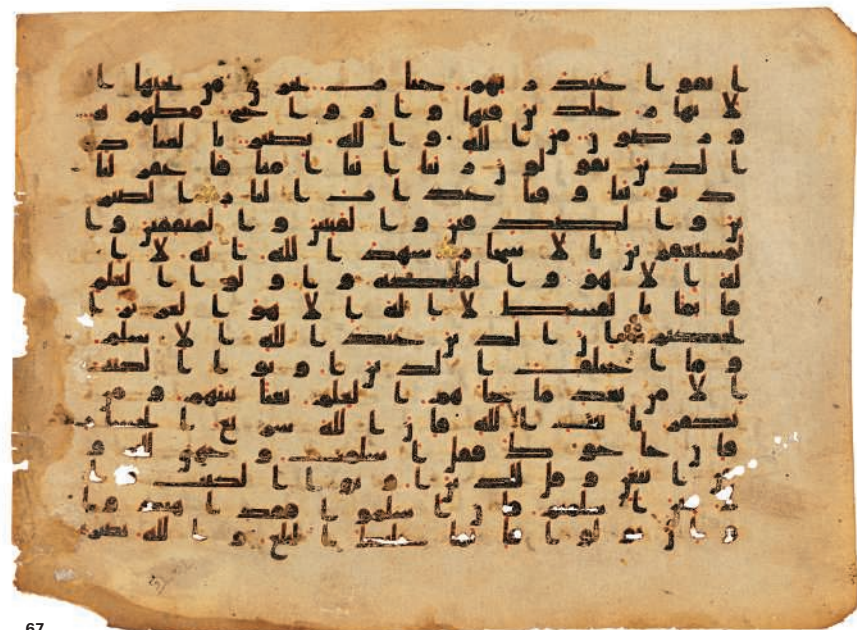 اتقوا عند ربهم جنت تجري من تحتها ا
لانهار خلدين فيها وازوج مطهرة
ورضون من الله والله بصير بالعباد
الذين يقولون ربنا اننا امنا فاغفر لنا
ذنوبنا وقنا عذاب النار الصبر
ين والصدقين والقنتين والمنفقين وا
لمستغفرين بالاسحار شهد الله انه لا ا
له الا هو والملئكة واولوا العلم
قائما بالقسط لا اله الا هو العزيز ا
لحكيم ان الدين عند الله الاسلم
وما اختلف الذين اوتوا الكتب
الا من بعد ما جاهم العلم بغيا بينهم ومن
يكفر بايت الله فان الله سريع الحساب
فان حاجوك فقل اسلمت وجهي لله و
من اتبعن وقل للذين اوتوا الكتب وا
لامين اسلمتم فان اسلموا فقد اهتدوا
وان تولوا فانما عليك البلغ والله بصير
67